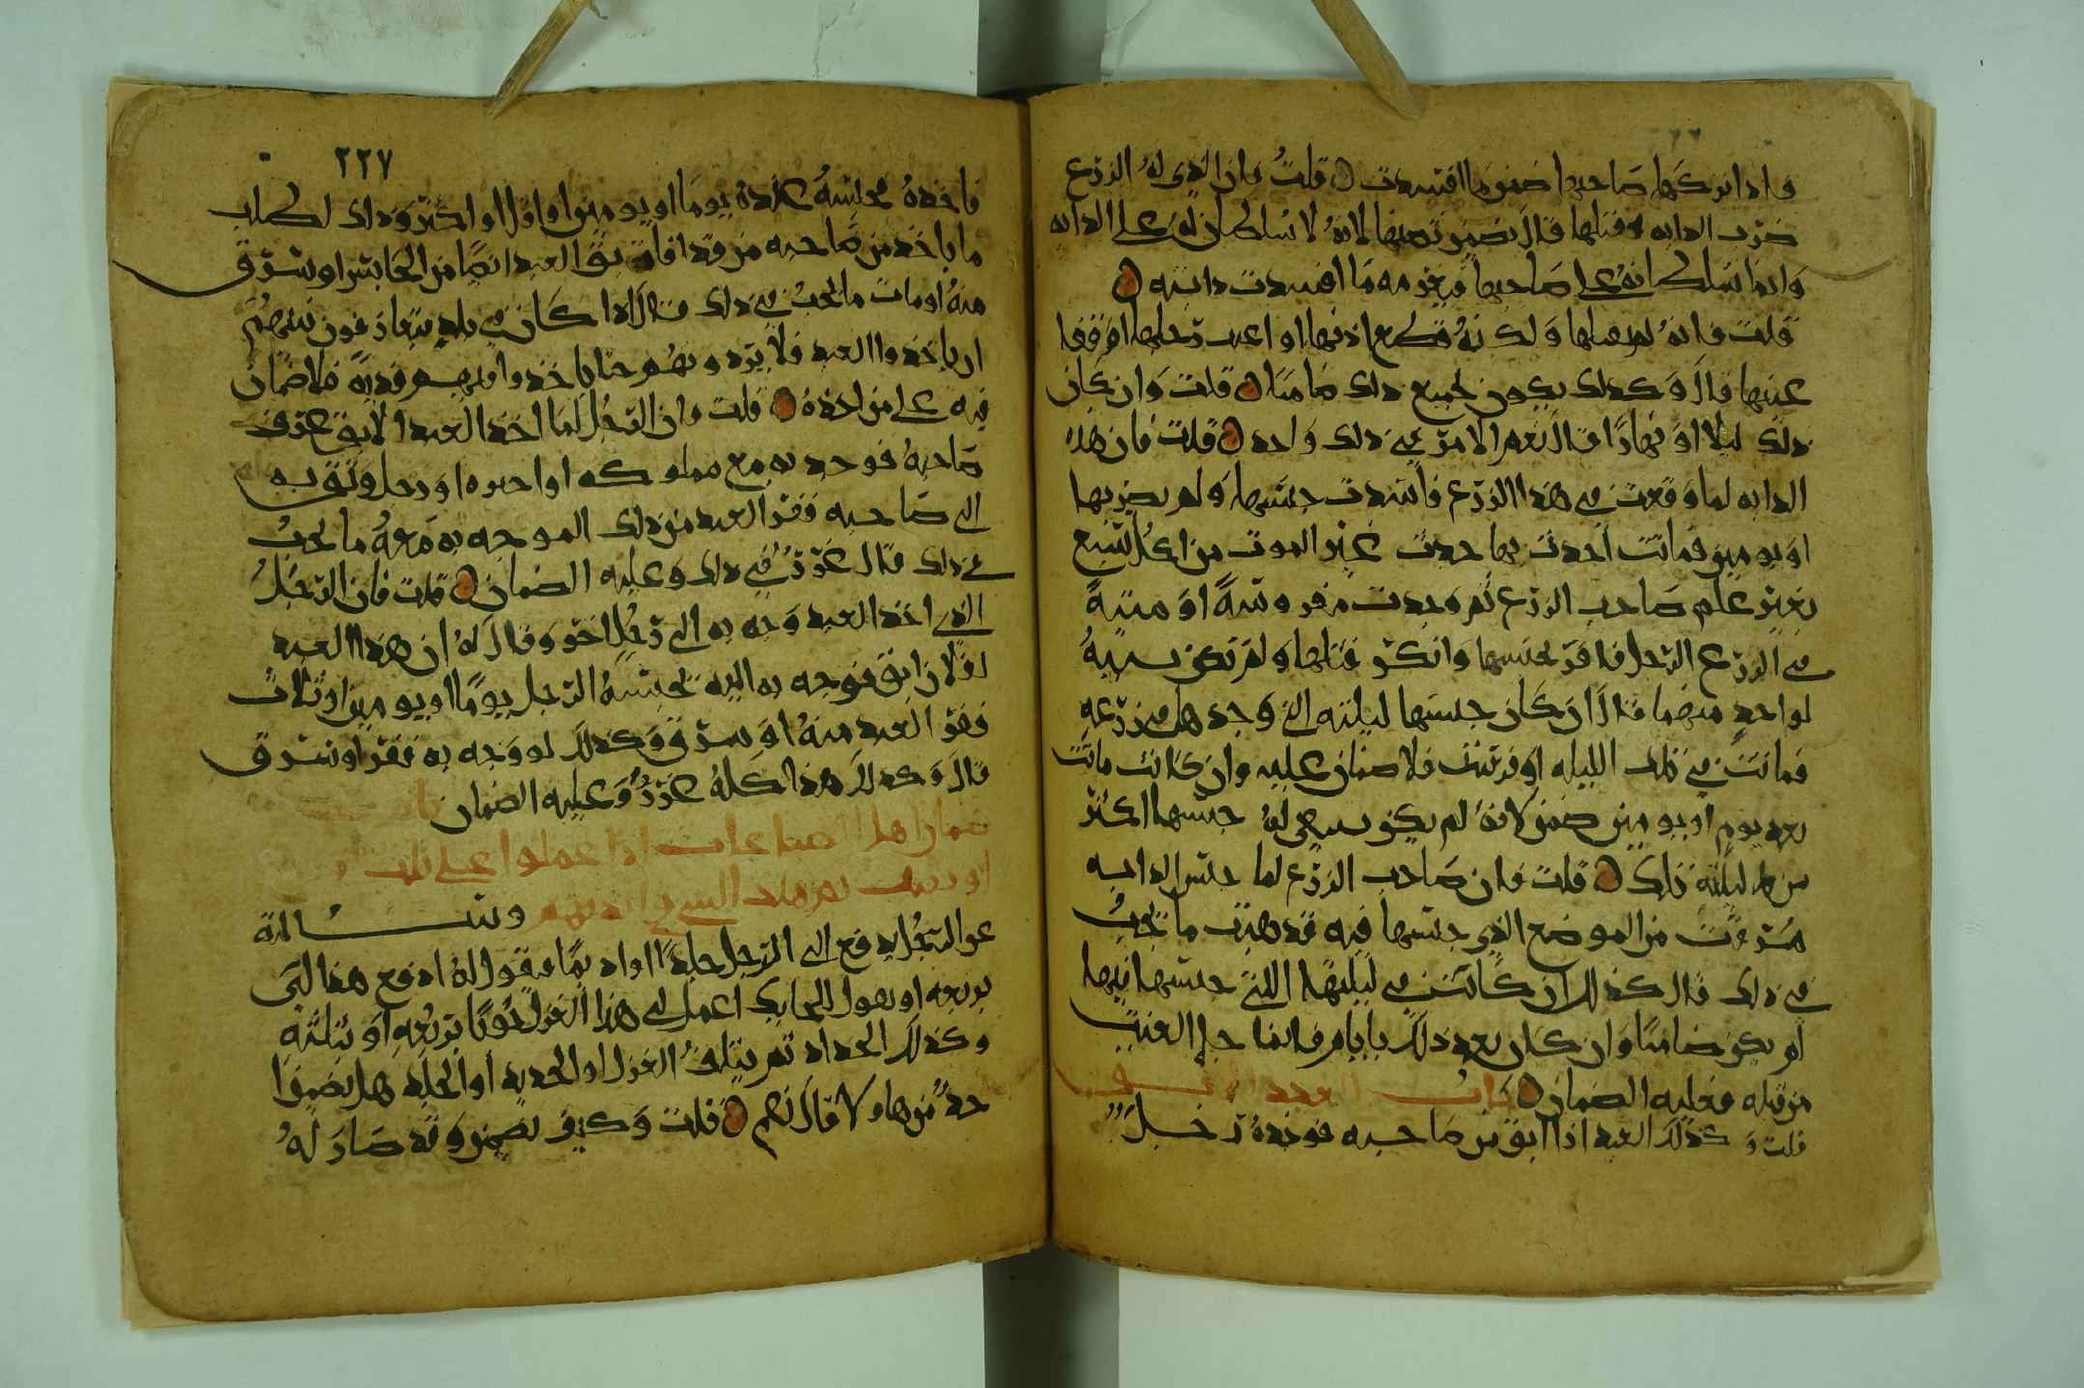 واذا تركها صاحبها ضمن ما افسدت قلت فان الذي له الزرع
ضرب الدابه فقتلها قال يضمن نصفها لانه لا سلطان له على الدابه
وانما سلطانه على صاحبها فيغرمه ما افسدت دابته
قلت فانه لم يقتلها ولكنه قطع اذنها او اعرب رجلها او فقا
عينها قال وكذلك يكون لجميع ذلك ضامنا قلت وان كان
ذلك ليلا او نهارا قال نعم الامر في ذلك واحد قلت فان هذه
الدابه لما وقعت في هذا الزرع فافسدت حبسها ولم يضربها
او يومين فماتت احدث بها حدث غير الموت من اكل سبع
بغير علم صاحب الزرع ثم وجدت مفروسة او ميتة
في الزرع الرجل فاقر بحبسها وانكر قتلها ولم تكن بينة
لواحد منهما قال ان كان حبسها ليلته التي وجدها في زرعه
فماتت في تلك الليله او فرست فلا ضمان عليه وان كانت ماتت
بعد يوم او يومين ضمن لانه لم يكن ينبغي له حبسها اكثر
من ليلته تلك قلت فان صاحب الزرع لما حبس الدابه
سرقت من الموضع الذي حبسها فيه فذهبت ما يجب
في ذلك قال كذلك ان كانت في ليلتها التي حبسها فيها
لم يكن ضامنا وان كان بعد ذلك بايام فانما جا العنت
من قبله فعليه الضمان باب العبد الابق
قلت وكذلك العبد اذا ابق من صاحبه فوجده رجل
٢٢٧
فاخذه فحبسه عنده يوما او يومين او اقل او اكثر وذلك لطلب
ما ياخذ من صاحبه من قد افا بق العبد ايضا من الحابس او سرق
منه او مات ما يجب في ذلك قال اذا كان في بلد يتعارفون بينهم
ان ياخذوا العبد فلا يردونهم حتا ياخذوا فيهم فدية فلا ضمان
فيه على من اخذه قلت فان الرجل لما اخذ العبد الابق عرف
صاحبه فوجه به مع مملوكه او اجيره او رجل وثق به
الى صاحبه ففر العبد من ذلك الموجه به معه ما يجب
في ذلك قال غرر في ذلك وعليه الضمان قلت فان الرجل
الذي اخذ العبد وجه به الى رجل اخر وقال له ان هذا العبد
لفلان ابق فوجه به اليه فحبسه الرجل يوما او يومين او ثلاث
ففر العبد منه او سرق وكذلك لو وجه به ففر او سرق
قال وكذلك هذا كله غرر وعليه الضمان باب
ضمان اهل الصناعات اذا عملوا على ثلث
او ربع ثم تلف الشي في ايديهم وسالته
عن الرجل يدفع الى الرجل جلدا او اديما فيقول له ادفع هذا لي
بربعه او يقول للحايك اعمل لي هذا الغزل ثوبا بربعه او بثلثه
وكذلك الحداد ثم يتلف الغزل او الحديد او الجلد هل يضمنوا
حد من هاولا قال نعم قلت وكيف يضمن وقد صار له